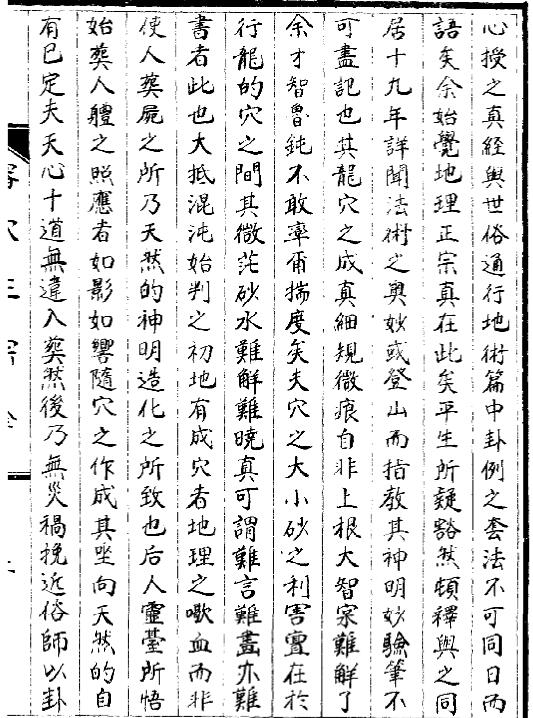 心授之真経與世俗通行地術篇中卦例之套法不可同日而
語矣余始覺地理正宗真在此矣平生所疑豁然頓釋與之同
居十九年詳聞法術之奥妙或登山而指教其神明妙驗筆不
可盡記也其龍穴之成真細規微痕自非上根大智家難解了
余才智魯鈍不敢率爾揣度矣夫穴之大小砂之利害實在於
行龍的穴之間其微茫砂水難解難曉真可謂難言難盡亦難
書者此也大抵混沌始判之初地有成穴者地理之嘔血而非
使人葬屍之所乃天然的神明造化之所致也后人靈臺所悟
始葬人軆之照應者如影如響隨穴之作成其坐向天然的自
有已定夫天心十道無違入葬然後乃無災禍挽近俗師以卦